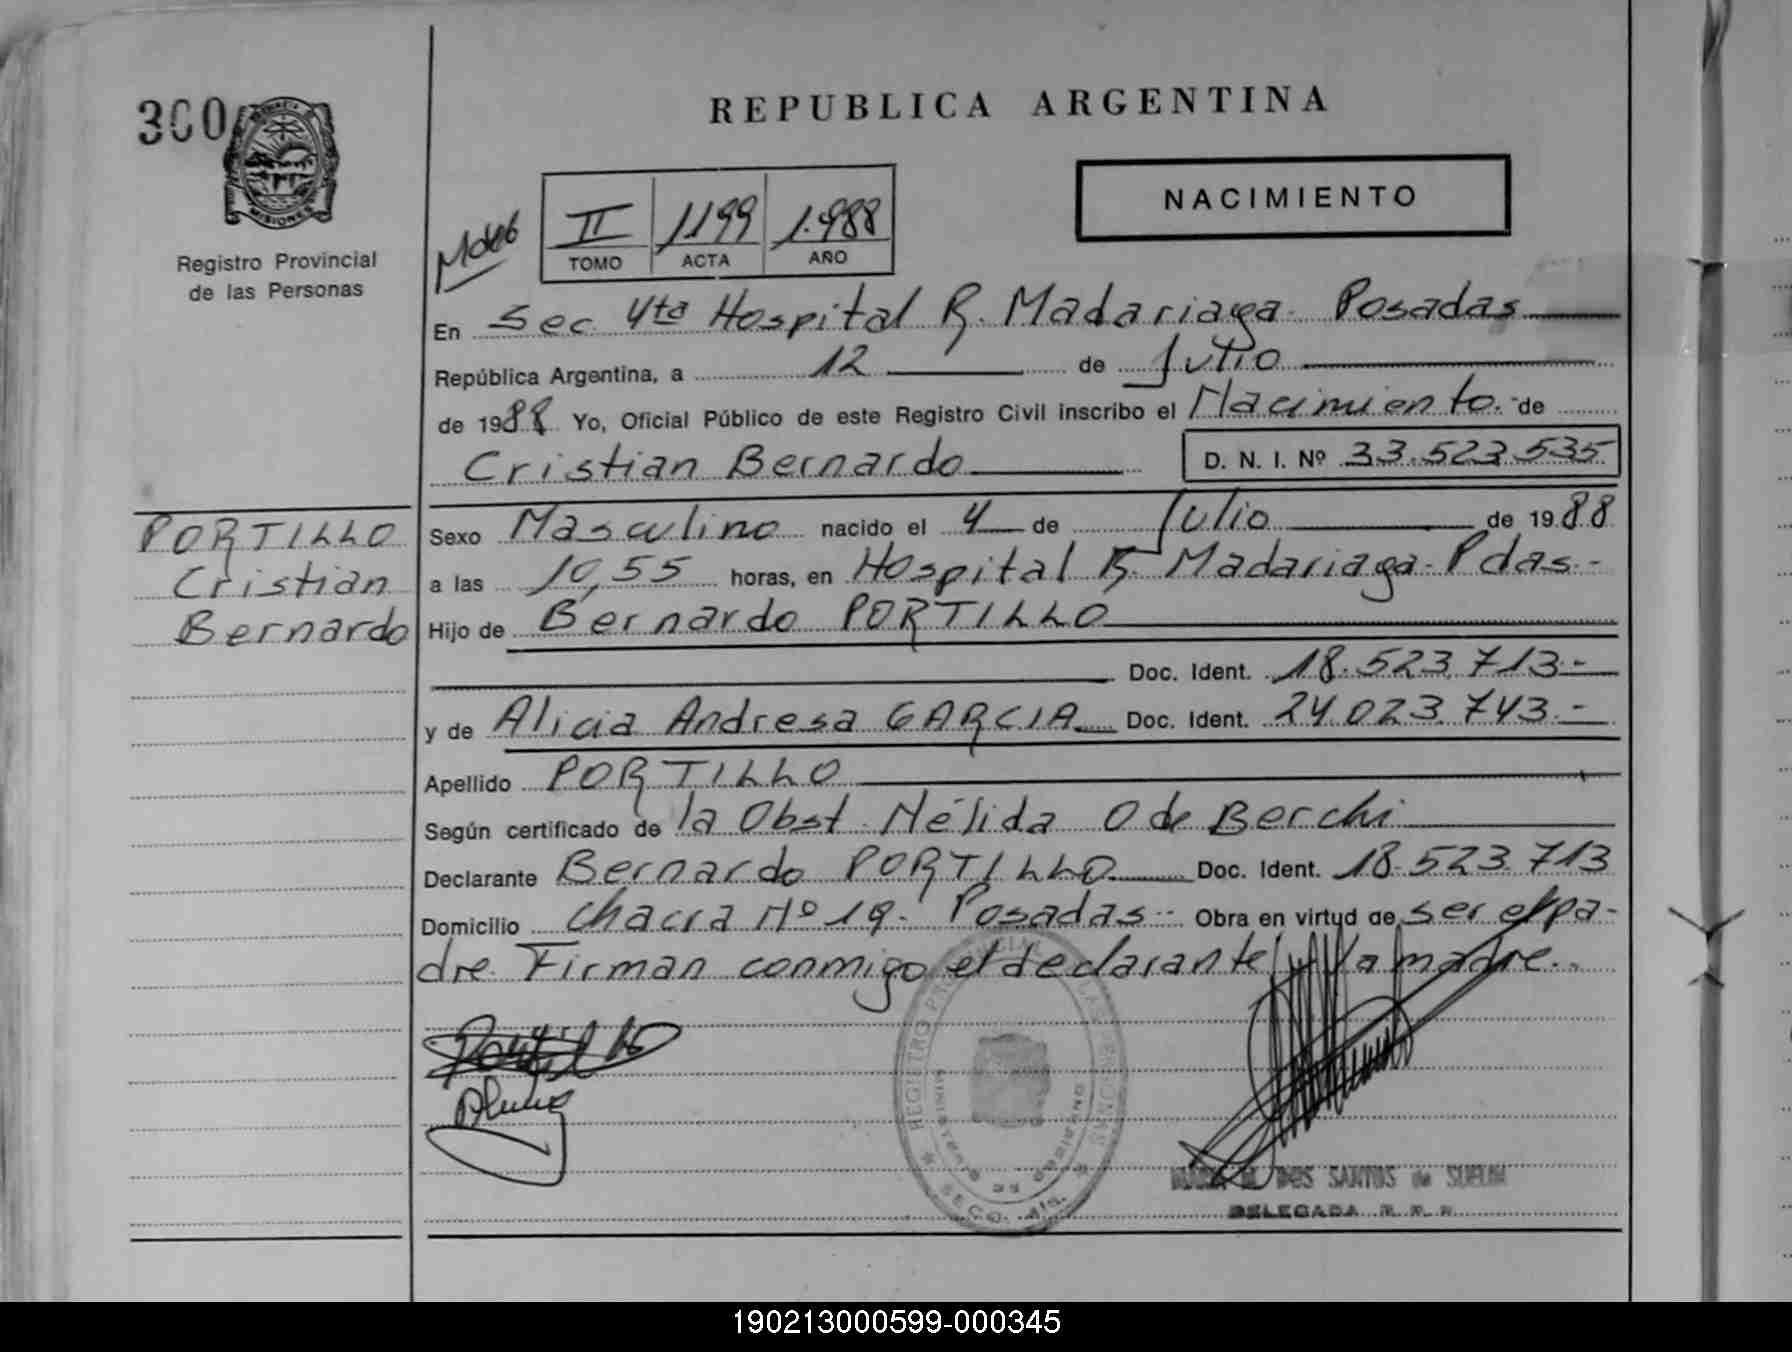 300
PROVINCIA
MISIONES
Registro Provincial
de las Personas
REPUBLICA ARGENTINA
NACIMIENTO
II 1199 1.988
TOMO ACTA AÑO
En Sec. 4ta Hospital R. Madariaga. Posadas
República Argentina, a 12 de Julio
de 1988 Yo, Oficial Público de este Registro Civil inscribo el Nacimiento. de
Cristian Bernardo D. N. I. Nº 33.523.535
PORTILLO
Cristian
Bernardo
Sexo Masculino nacido el 4 de Julio de 1988
a las 10,55 horas, en Hospital R. Madariaga. Pdas.-
Hijo de Bernardo PORTILLO
Doc. Ident. 18.523.713.-
y de Alicia Andresa GARCIA Doc. Ident. 24.023.743.-
Apellido PORTILLO
Según certificado de la Obst. Nélida O de Berchi
Declarante Bernardo PORTILLO Doc. Ident. 18.523.713
Domicilio chacra Nº 19.- Posadas.- Obra en virtud de ser el pa-
dre. Firman conmigo el declarante y la madre.
Portillo
REGISTRO PROVINCIAL DE LAS PERSONAS
MINISTERIO DE GOBIERNO
DOS SANTOS de
DELEGADA R. P. P.
190213000599-000345